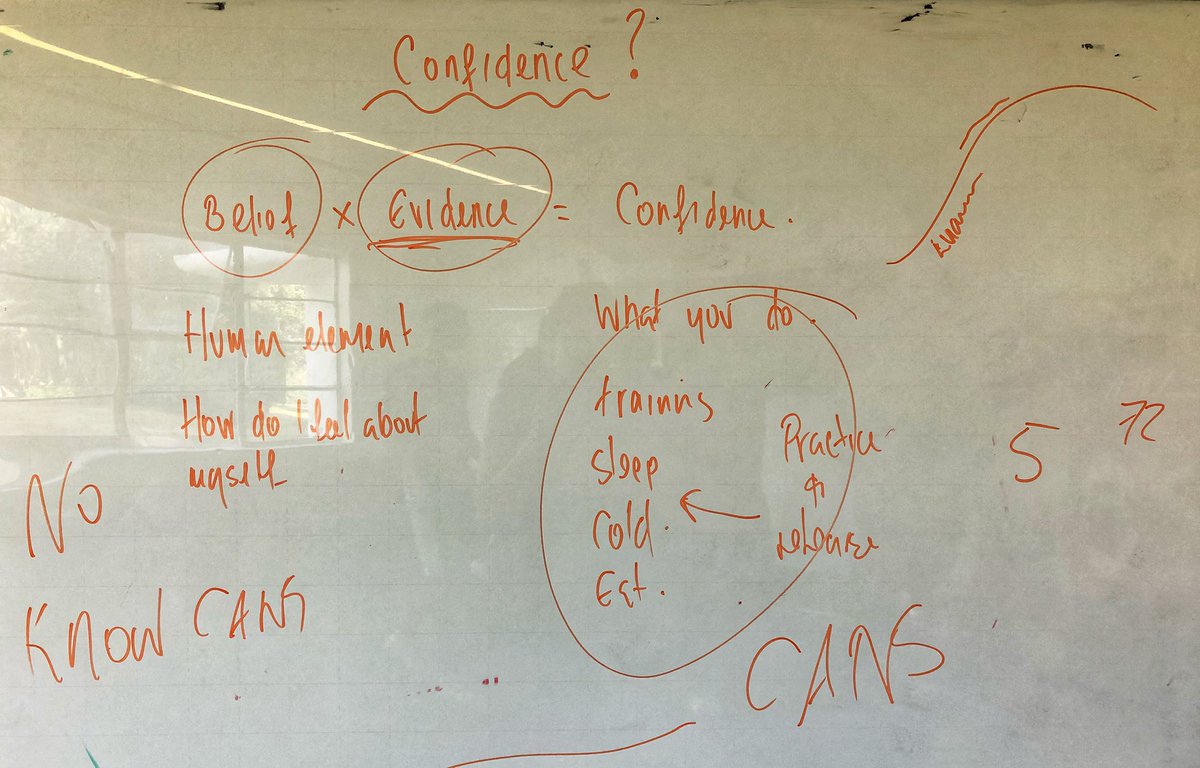 Confidence?
Belief × Evidence = Confidence.
Human element
How do I feel about
myself
What you do.
training
sleep
Cold.
Ect.
Practice
&
release
5 72
No
Know CANS
CANS